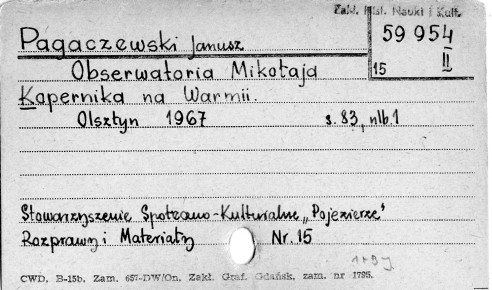 Zakł. Hist. Nauki i Kult.
Pagaczewski Janusz
59 954
II
15
Obserwatoria Mikołaja
Kopernika na Warmii.
Olsztyn 1967 s. 83, nlb. 1
Stowarzyszenie Społeczno-Kulturalne „Pojezierze"
Rozprawy i Materiały Nr. 15
CWD, B-15b. Zam. 657-DW/On. Zakł. Graf. Gdańsk, zam. nr 1795.